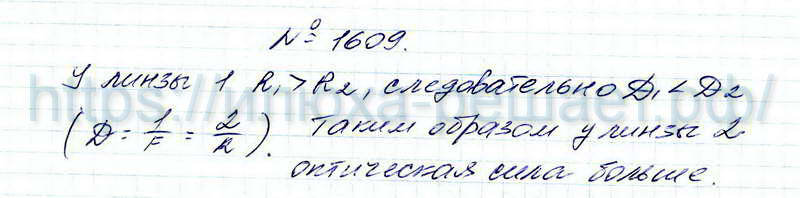 № 1609.
У линзы 1 R₁ > R₂, следовательно D₁ < D₂
(D = 1/F = 2/R). Таким образом у линзы 2
оптическая сила больше.